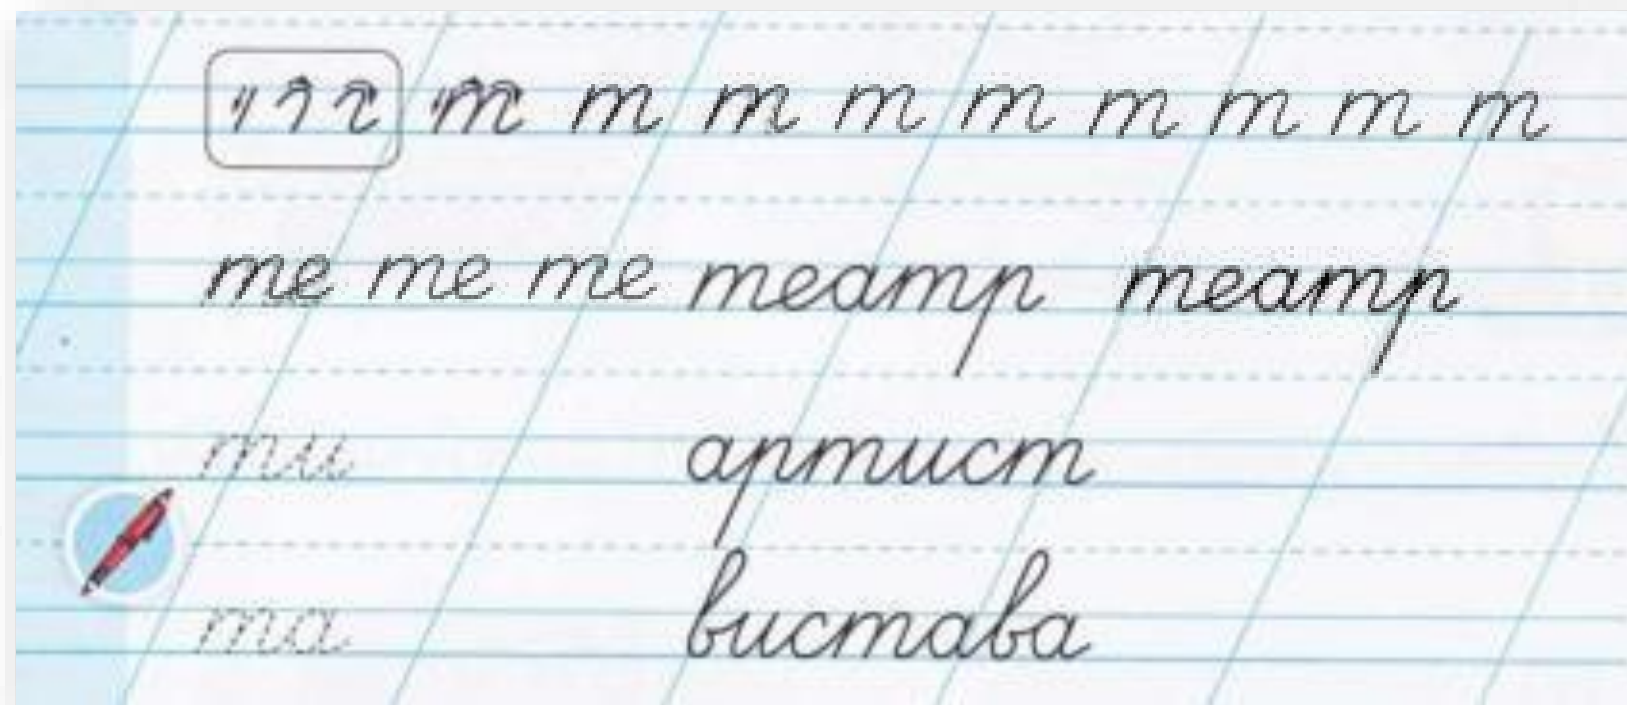 т т т т т т т т т
те те те театр театр
ти артист
та вистава